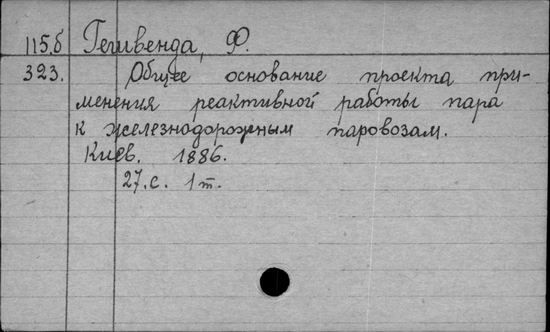 115.б Гешвенда, Ф.
323. Общее основание проекта при-
менения реактивной работы пара
к железнодорожным паровозам.
Киев. 1886.
27.с. 1т.